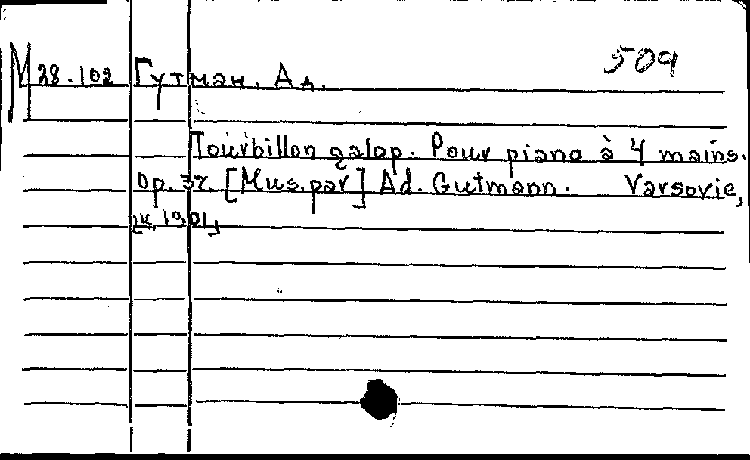 509
М 28.102 Гутман, Ад.
Tourbillon galop. Pour piano à 4 mains.
Op. 37. [Mus. par] Ad. Gutmann. Varsovie,
1901